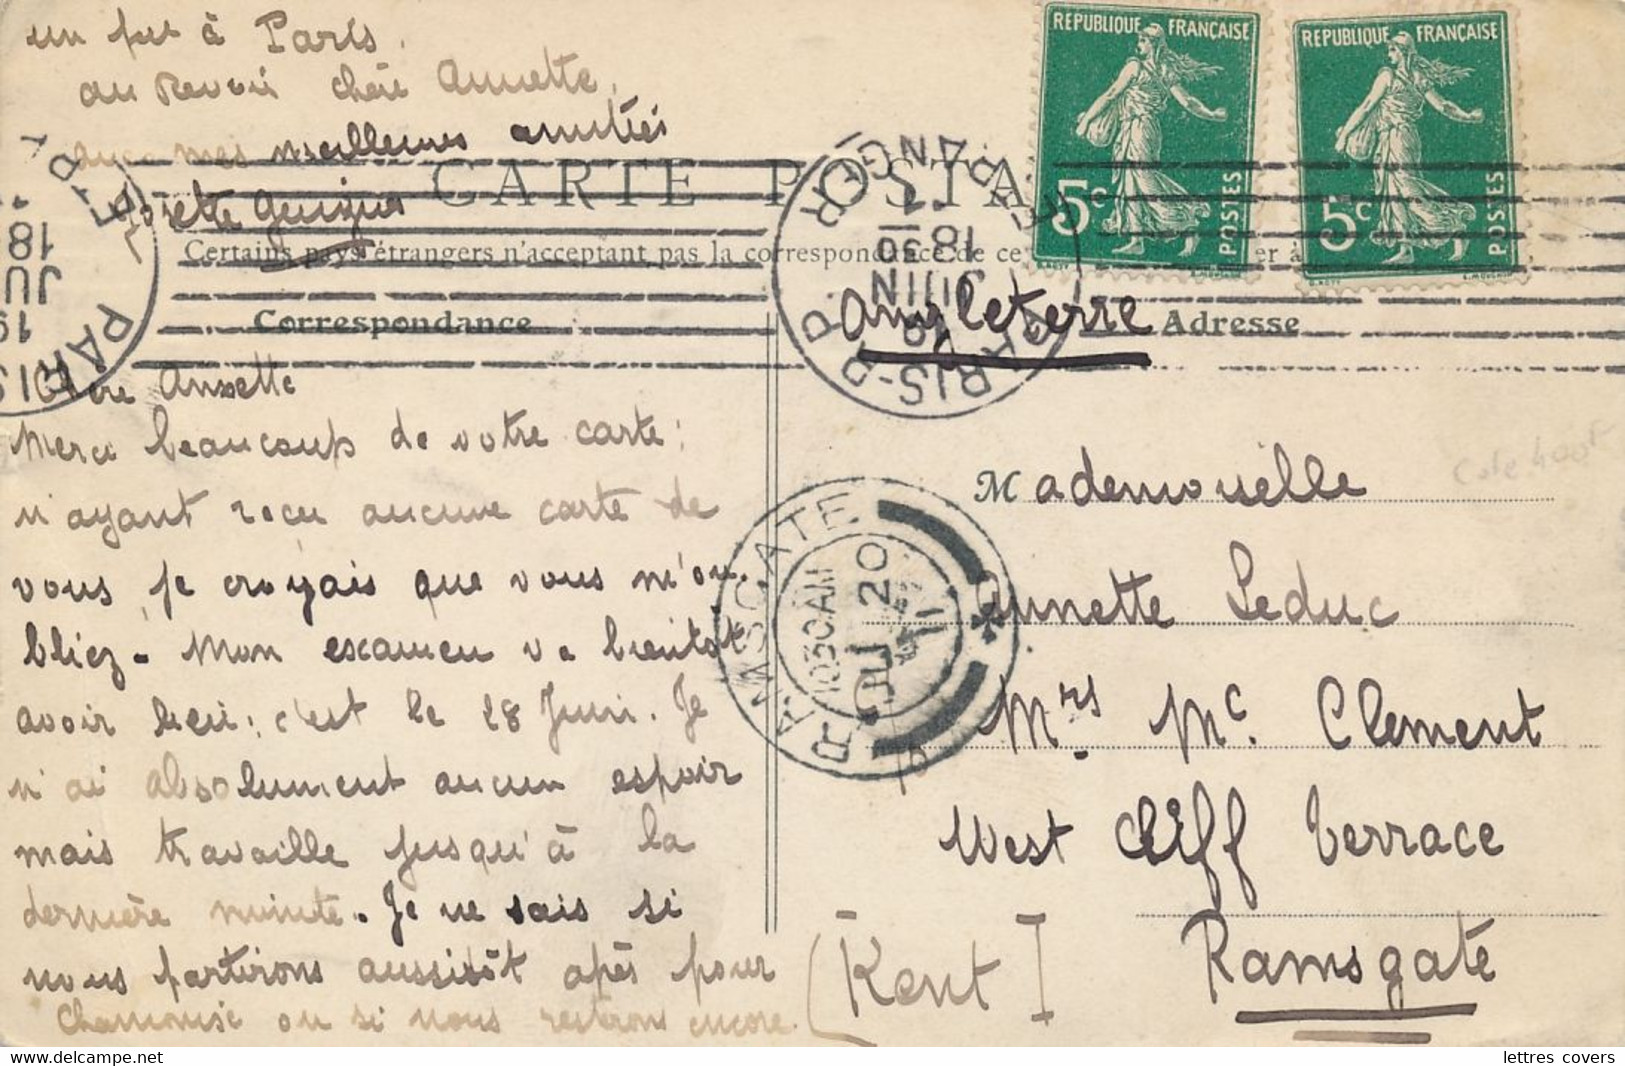 un peu à Paris.
au Revoir chère Annette,
avec mes meilleures amitiés
Josette
REPUBLIQUE FRANÇAISE
5c
POSTES
REPUBLIQUE FRANÇAISE
5c
POSTES
CARTE POSTA
Certains pays étrangers n'acceptant pas la correspondance de ce
er à
PARIS
JU
18
18 30
JUIN
Correspondance
Adresse
Angleterre
Chère Annette
Merci beaucoup de votre carte;
n'ayant recu aucune carte de
vous je croyais que vous m'ou-
bliez - Mon examen va bientôt
avoir lieu; c'est le 28 Juin. Je
n'ai absolument aucun espoir
mais travaille jusqu'à la
dernière minute. Je ne sais si
nous partirons aussitôt après pour
Chamonix ou si nous restrons encore
RAMSGATE
1030AM
JU 20
11
Cote 400F
Mademoiselle
Annette Leduc
Mrs Mc. Clement
West Cliff Terrace
Ramsgate
(Kent)
lettres covers